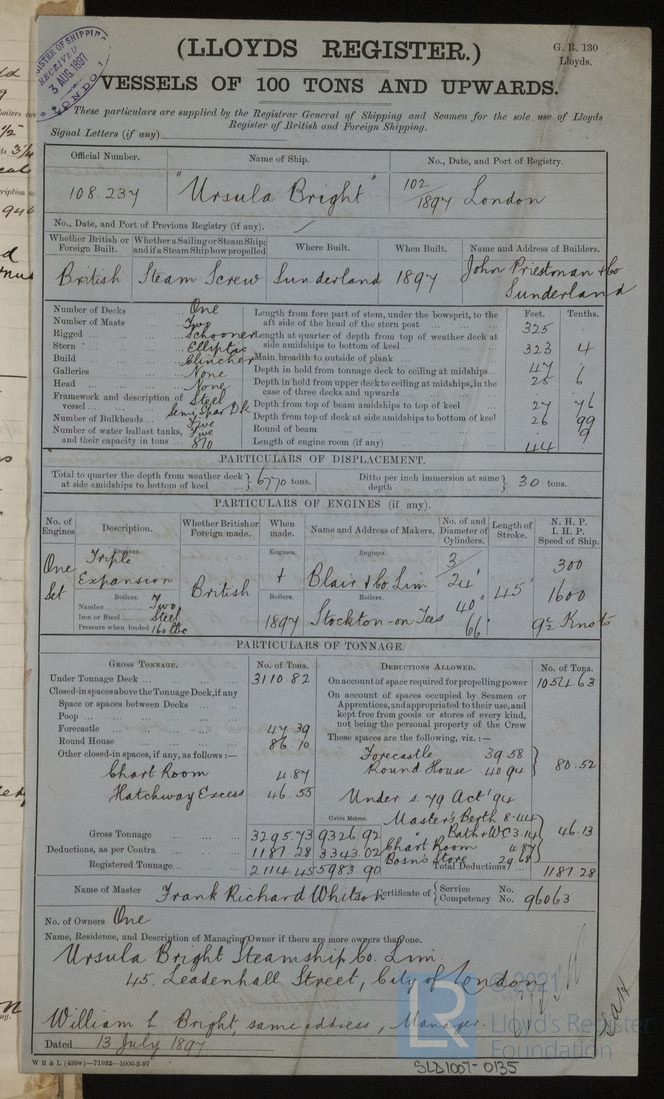 REGISTER OF SHIPPING
RECEIVED
3 AUG. 1897
LONDON
(LLOYDS REGISTER.)
G. R. 130
Lloyds.
VESSELS OF 100 TONS AND UPWARDS.
These particulars are supplied by the Registrar General of Shipping and Seamen for the sole use of Lloyds
Register of British and Foreign Shipping.
Signal Letters (if any)
Official Number. Name of Ship. No., Date, and Port of Registry.
108.237 "Ursula Bright" 102/1897 London
No., Date, and Port of Previous Registry (if any).
Whether British or Foreign Built. Whether a Sailing or Steam Ship; and if a Steam Ship how propelled Where Built. When Built. Name and Address of Builders.
British Steam Screw Sunderland 1897 John Priestman & Co
Sunderland
Feet. Tenths.
Number of Decks One
Number of Masts Two
Rigged Schooner
Stern Elliptic
Build Clincher
Galleries None
Head None
Framework and description of vessel Steel
Semi Spar Dk
Number of Bulkheads Five
Number of water ballast tanks, and their capacity in tons Five
870
Length from fore part of stem, under the bowsprit, to the aft side of the head of the stern post 325
Length at quarter of depth from top of weather deck at side amidships to bottom of keel 323 4
Main breadth to outside of plank 47 1
Depth in hold from tonnage deck to ceiling at midships 25 6
Depth in hold from upper deck to ceiling at midships, in the case of three decks and upwards
Depth from top of beam amidships to top of keel 27 76
Depth from top of deck at side amidships to bottom of keel 26 99
Round of beam 9
Length of engine room (if any) 44
PARTICULARS OF DISPLACEMENT.
Total to quarter the depth from weather deck at side amidships to bottom of keel 6770 tons. Ditto per inch immersion at same depth 30 tons.
PARTICULARS OF ENGINES (if any).
No. of Engines Description. Whether British or Foreign made. When made. Name and Address of Makers. No. of and Diameter of Cylinders. Length of Stroke. N. H. P. I. H. P. Speed of Ship.
Engines. Engines. Engines.
One Set Triple Expansion British Blair & Co. Lim 3 24" 45" 300
Boilers. Boilers. Boilers. 40" 1600
Number Two
Iron or Steel Steel 1897 Stockton-on-Tees 66" 9½ Knots
Pressure when loaded 160 lbs
PARTICULARS OF TONNAGE.
GROSS TONNAGE. No. of Tons. DEDUCTIONS ALLOWED. No. of Tons.
Under Tonnage Deck 3110.82
On account of space required for propelling power 1054.63
Closed-in spaces above the Tonnage Deck, if any
Space or spaces between Decks
Poop
Forecastle 47.39
Round House 86.10
Other closed-in spaces, if any, as follows:—
Chart Room 4.87
Hatchway Excess 46.55
On account of spaces occupied by Seamen or Apprentices, and appropriated to their use, and kept free from goods or stores of every kind, not being the personal property of the Crew
These spaces are the following, viz.:—
Forecastle 39.58
Round House 40.94 80.52
Under s. 79 Act '94
Cubic Metres.
Master's Berth 8.44
" Bath & WC 3.14
Chart Room 4.87
Bosn's Store 29.68 46.13
Gross Tonnage 3295.73 9326.92
Deductions, as per Contra 1181.28 3343.02
Registered Tonnage 2114.45 5983.90
Total Deductions 1181.28
Name of Master Frank Richard Whitson Certificate of Service No.
Competency No. 96063
No. of Owners One
Name, Residence, and Description of Managing Owner if there are more owners than one.
Ursula Bright Steamship Co. Lim
45. Leadenhall Street, City of London
William L. Bright, same address, Manager.
Dated 13 July 1897
W B & L (499w)—71932—1000-2-97
© 2021
LR
Lloyd's Register
Foundation
SLD1007-0135